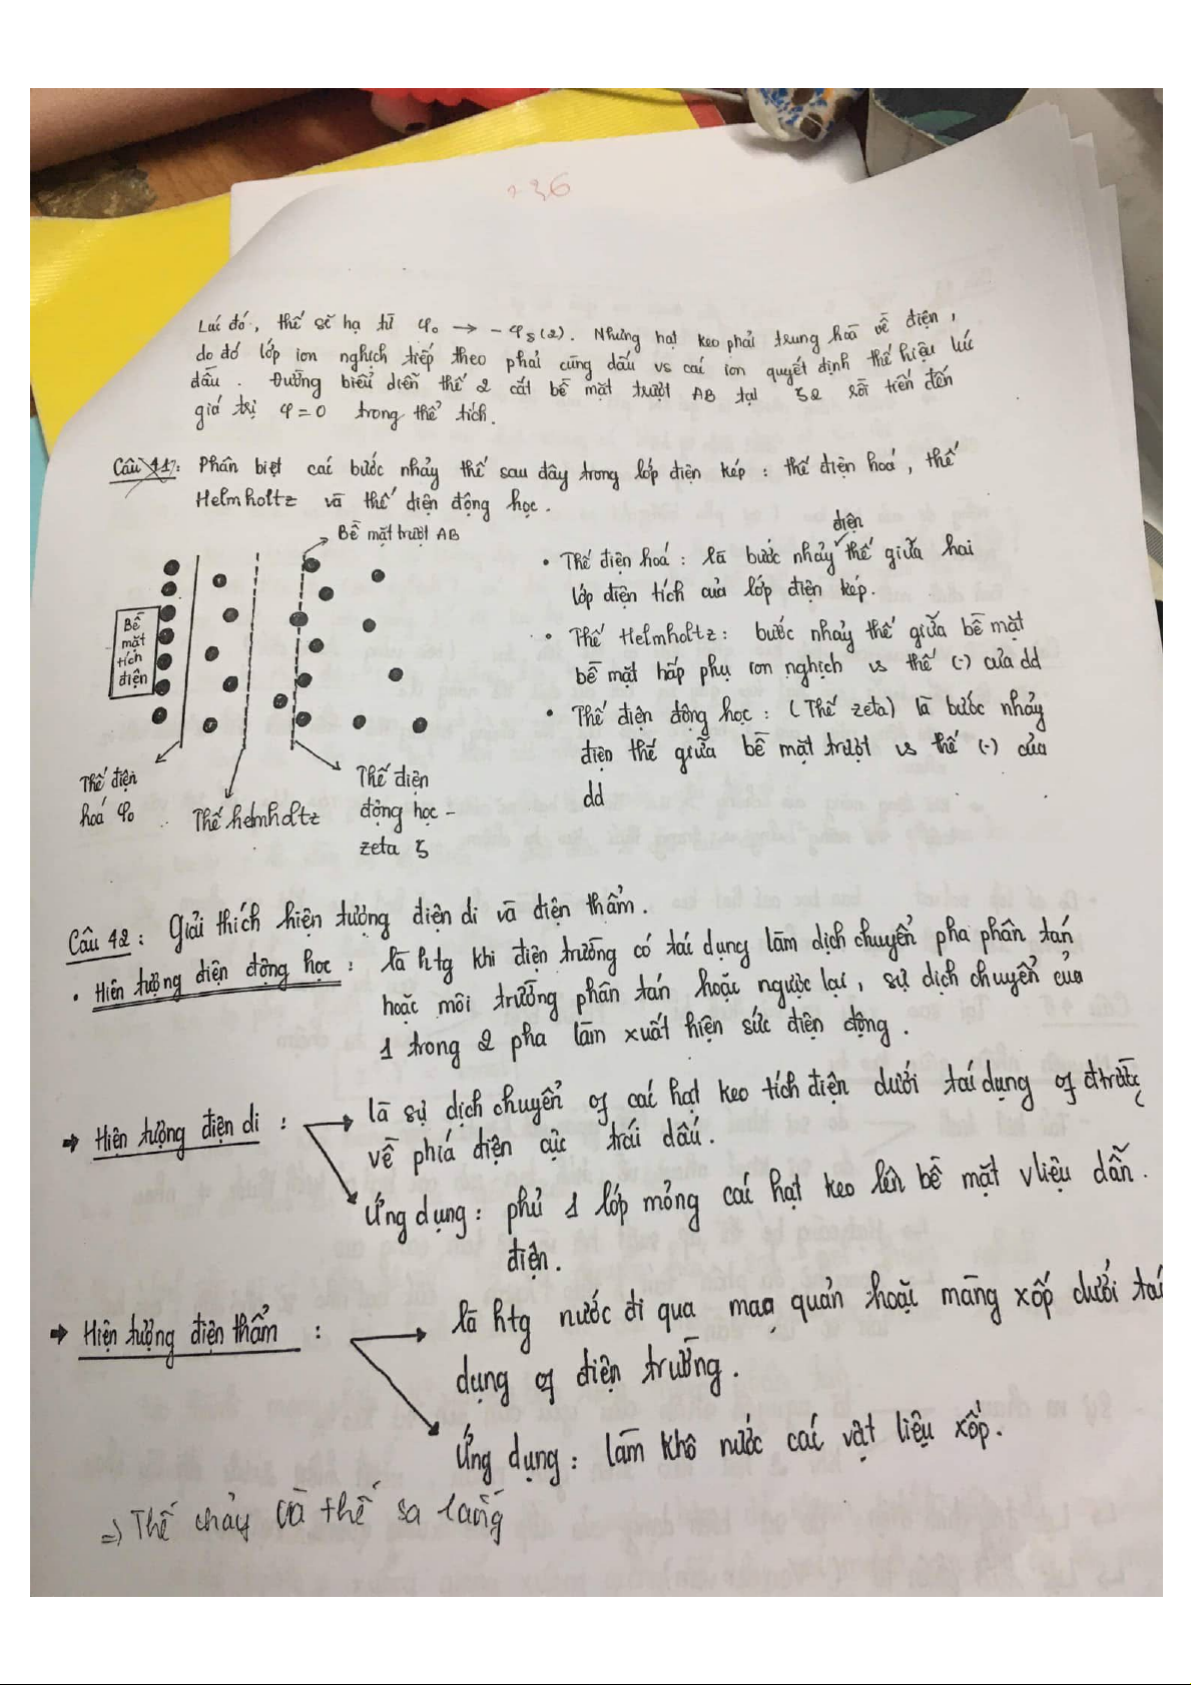 36
Lúc đó, thế sẽ hạ từ φ₀ → -φδ(2). Nhưng hạt keo phải trung hoà về điện,
do đó lớp ion nghịch tiếp theo phải cùng dấu vs các ion quyết định thế hiệu lúc
đầu. Đường biểu diễn thế 2 cắt bề mặt trượt AB tại ζ2 rồi tiến đến
giá trị φ=0 trong thể tích.
Câu 41: Phân biệt các bước nhảy thế sau đây trong lớp điện kép: thế điện hoá, thế
Helmholtz và thế điện động học.
Bề mặt trượt AB
Bề
mặt
tích
điện
Thế điện
hoá φ₀
Thế helmholtz
Thế điện
động học -
zeta ζ
điện
• Thế điện hoá: là bước nhảy thế giữa hai
lớp điện tích của lớp điện kép.
• Thế Helmholtz: bước nhảy thế giữa bề mặt
bề mặt hấp phụ ion nghịch vs thế (-) của dd
• Thế điện động học: (Thế zeta) là bước nhảy
điện thế giữa bề mặt trượt vs thế (-) của
dd
Câu 42: Giải thích hiện tượng điện di và điện thẩm.
• Hiện tượng điện động học: là htg khi điện trường có tác dụng làm dịch chuyển pha phân tán
hoặc môi trường phân tán hoặc ngược lại, sự dịch chuyển của
1 trong 2 pha làm xuất hiện sức điện động.
→ Hiện tượng điện di:
là sự dịch chuyển of các hạt keo tích điện dưới tác dụng of đtrường
về phía điện cực trái dấu.
Ứng dụng: phủ 1 lớp mỏng các hạt keo lên bề mặt vliệu dẫn.
điện.
→ Hiện tượng điện thẩm:
là htg nước đi qua mao quản hoặc màng xốp dưới tác
dụng of điện trường.
Ứng dụng: làm khô nước các vật liệu xốp.
=> Thế chảy và thế sa lắng